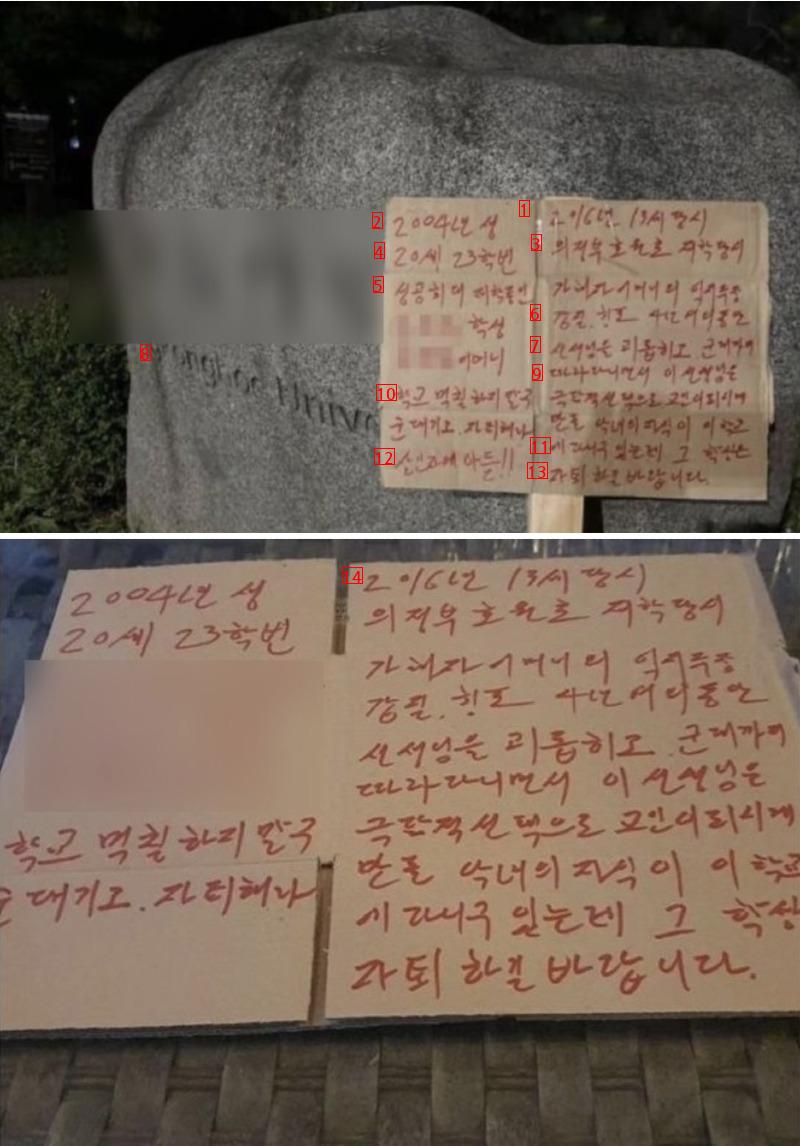 2004년 생
20세 23학번
성공회대 재학중인
학생
어머니
학교 먹칠 하지 말구
군대가고. 자퇴해라
살인자에 아들!!
2016년 13세 당시
의정부 호원초 재학당시
가해자 어머니의 악성루
강요. 협조 4년여의 동안
선생님을 괴롭히고 군대까지
따라다니면서 이 선생님은
극단적선택으로 고인이되시게
만든 악녀의 자식이 이 학교
에 다니구 있는데 그 학생은
자퇴 하길 바랍니다.
2004년 생
20세 23학번
학교 먹칠 하지 말구
군대가고. 자퇴해라
2016년 13세 당시
의정부 호원초 재학당시
가해자 어머니의
4년여의 동안
선생님을 괴롭히고 군대까지
따라다니면서 이 선생님은
극단적선택으로 고인이되시게
만든 악녀의 자식이 이 학교
에 다니구 있는데 그 학생
자퇴 하길 바랍니다.